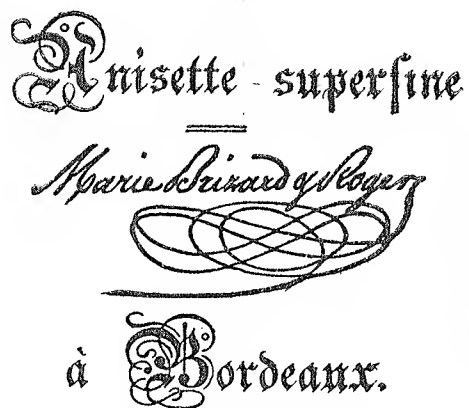 Anisette superfine
Marie Brizard & Roger
à Bordeaux.